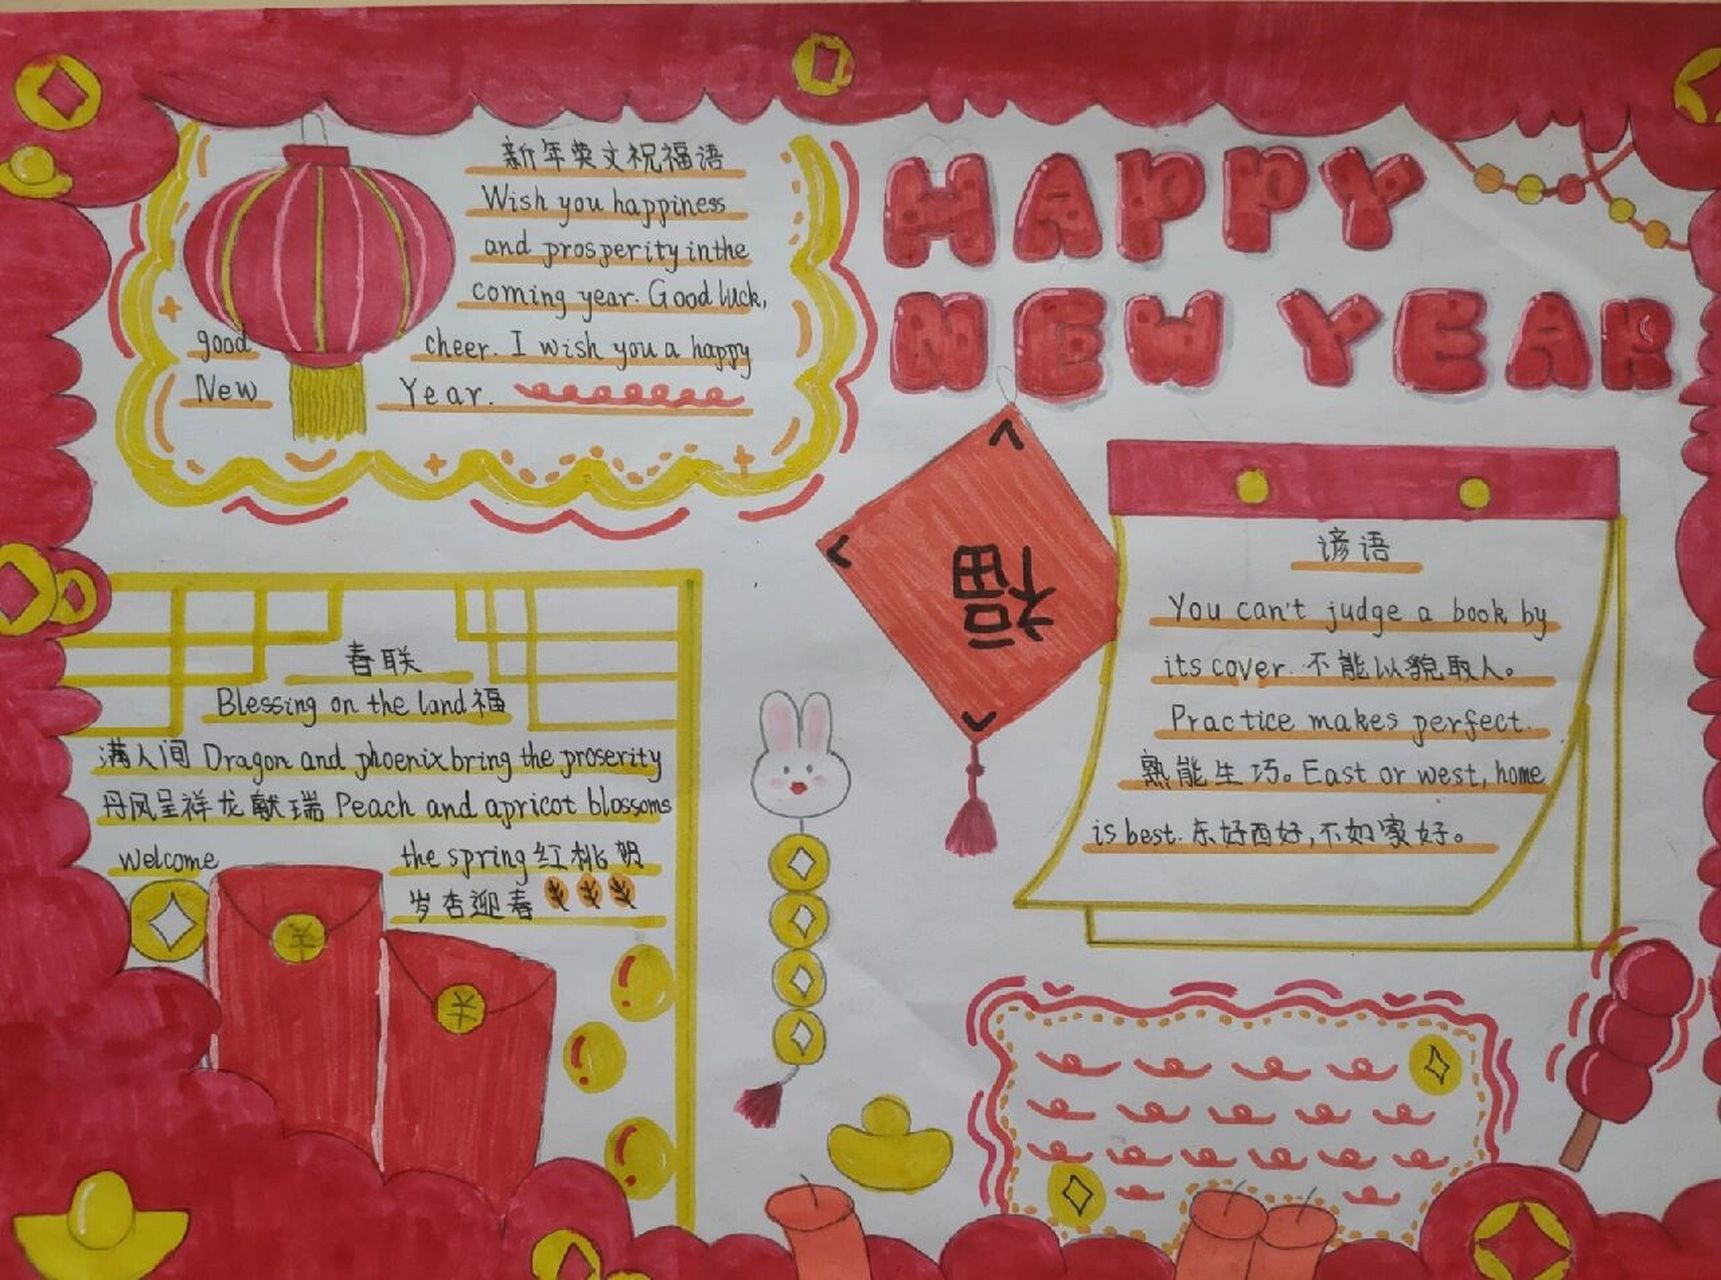 新年英文祝福语
Wish you happiness
and prosperity in the
coming year. Good luck,
good cheer. I wish you a happy
New Year.
HAPPY
NEW YEAR
福
谚语
You can't judge a book by
its cover. 不能以貌取人。
Practice makes perfect.
熟能生巧。East or west, home
is best. 东好西好,不如家好。
春联
Blessing on the land 福
满人间 Dragon and phoenix bring the proserity
丹凤呈祥龙献瑞 Peach and apricot blossoms
welcome the spring 红桃贺
岁杏迎春
羊
羊